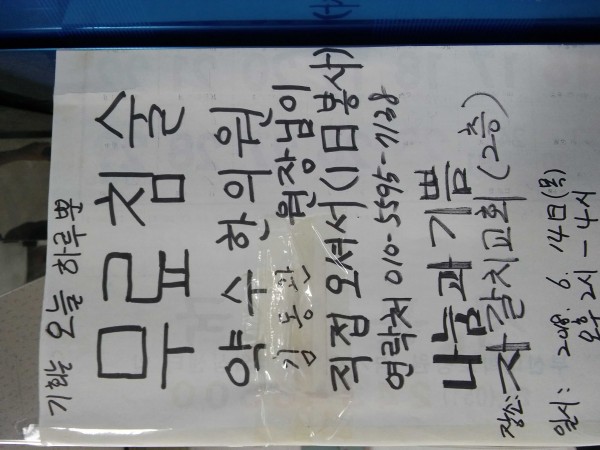 기회는 오늘 하루뿐
무료침술
약수한의원
김동환 원장님이
직접 오셔서(1日봉사)
연락처 010-5595-7138
나눔과 기쁨
장소: 자갈치교회 (2층)
일시: 2018. 6. 14日(목)
오후 2시 - 4시